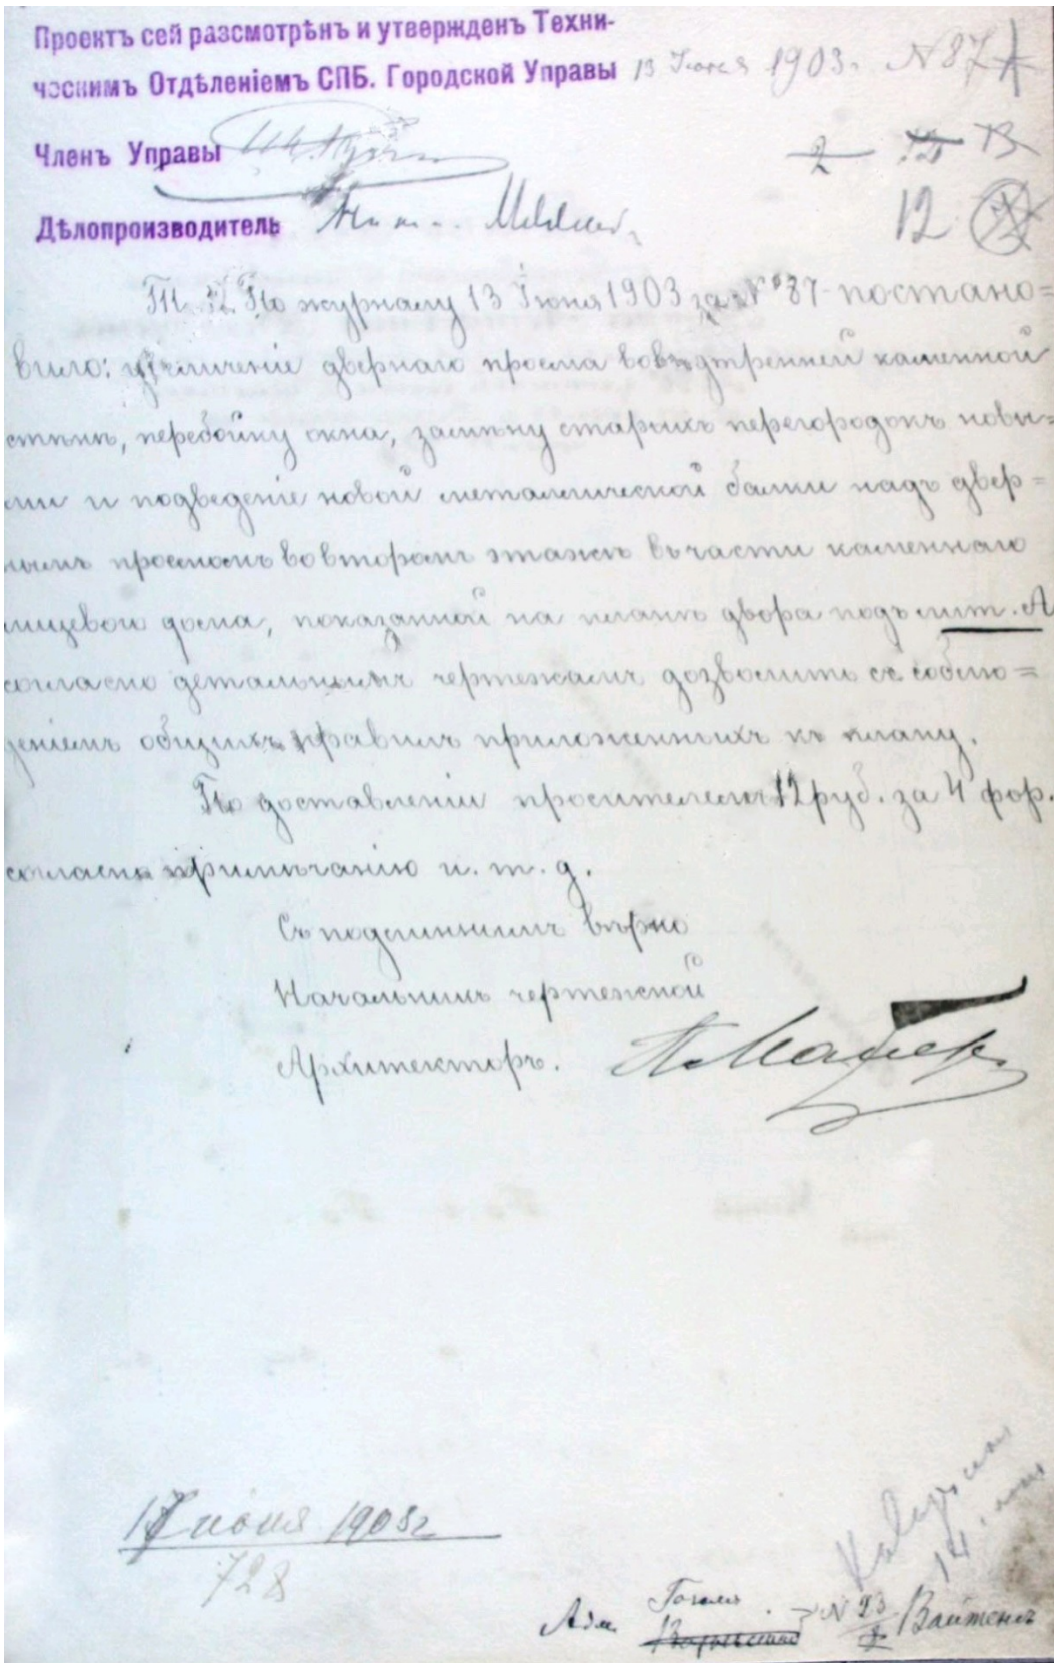 Проектъ сей разсмотрѣнъ и утвержденъ Техни-
ческимъ Отдѣленіемъ СПБ. Городской Управы 13 Іюня 1903г. N 87
Членъ Управы
2
Дѣлопроизводитель
12
По журналу 13 Іюня 1903 за №87 - постано=
вило: увеличеніе двернаго проема во внутренней каменной
стѣнѣ, перебойку окна, замѣну старыхъ перегородокъ новы=
ми и подведеніе новой металлической балки надъ двер=
нымъ проемомъ во второмъ этажѣ въ части каменнаго
лицевого дома, показанной на планѣ двора подъ лит. А
согласно детальнымъ чертежамъ дозволить съ соблю=
деніемъ общихъ правилъ приложенныхъ къ плану.
По доставленіи просителемъ 12 руб. за 4 фор.
согласно примѣчанію и. т. д.
Съ подлиннымъ вѣрно
Начальникъ чертежной
Архитекторъ.
іюня 1903г
728
14
Адм. Гоголя N 23